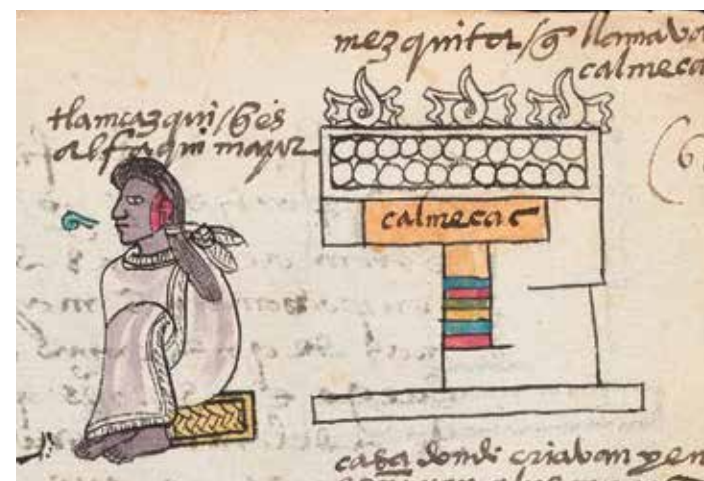 mezquita / q̃ llamava
calmeca
tlamcazqui / q̃ es
alfaqui mayor
calmecac
casa donde criavan y en